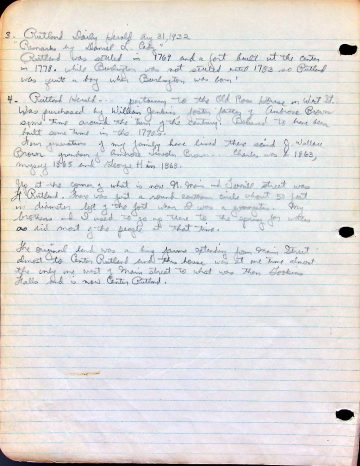 3. Rutland Daily Herald Aug 31, 1932
Remarks by Daniel L. Cady"
Rutland was settled in 1769 and a fort built at the center
in 1778. while Burlington was not settled until 1783 so Rutland
was quite a boy when Burlington was born!
4. Rutland Herald... pertaining to the Old Brown House on West St.
Was purchased by William Jenkins foster father of Ambrose Brown
some time around the turn of the century. Believed to have been
built some time in the 1790s.
Four generations of my family have lived there said J. Wallace
Brown grandson of Ambrose Lincoln Brown. Charles was in 1863,
myself 1865 and George H in 1868.
Up at the corner of what is now N. Main and Terrill street was
Ft Rutland. There was just a round earthen circle about 50 feet
in diameter left of the fort when I was a youngster. My
brothers and I used to go up there to the spring for water
as did most of the people at that time.
The original land was a big farm extending from Main Street
almost to Center Rutland and this house was at one time almost
the only one west of Main Street to what was then Gookins
Falls and is now Center Rutland.